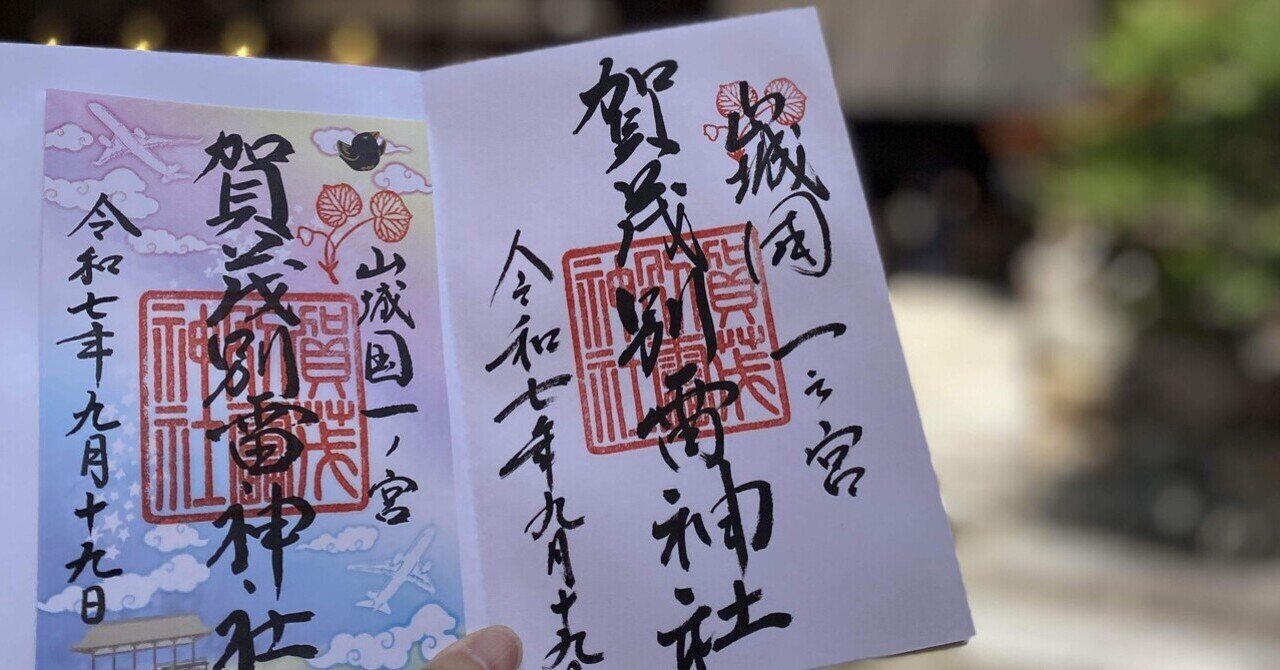 山城国一之宮
賀茂別雷神社
賀茂
神社
令和七年九月十九
山城国一ノ宮
賀茂別雷神社
賀茂
神社
令和七年九月十九日